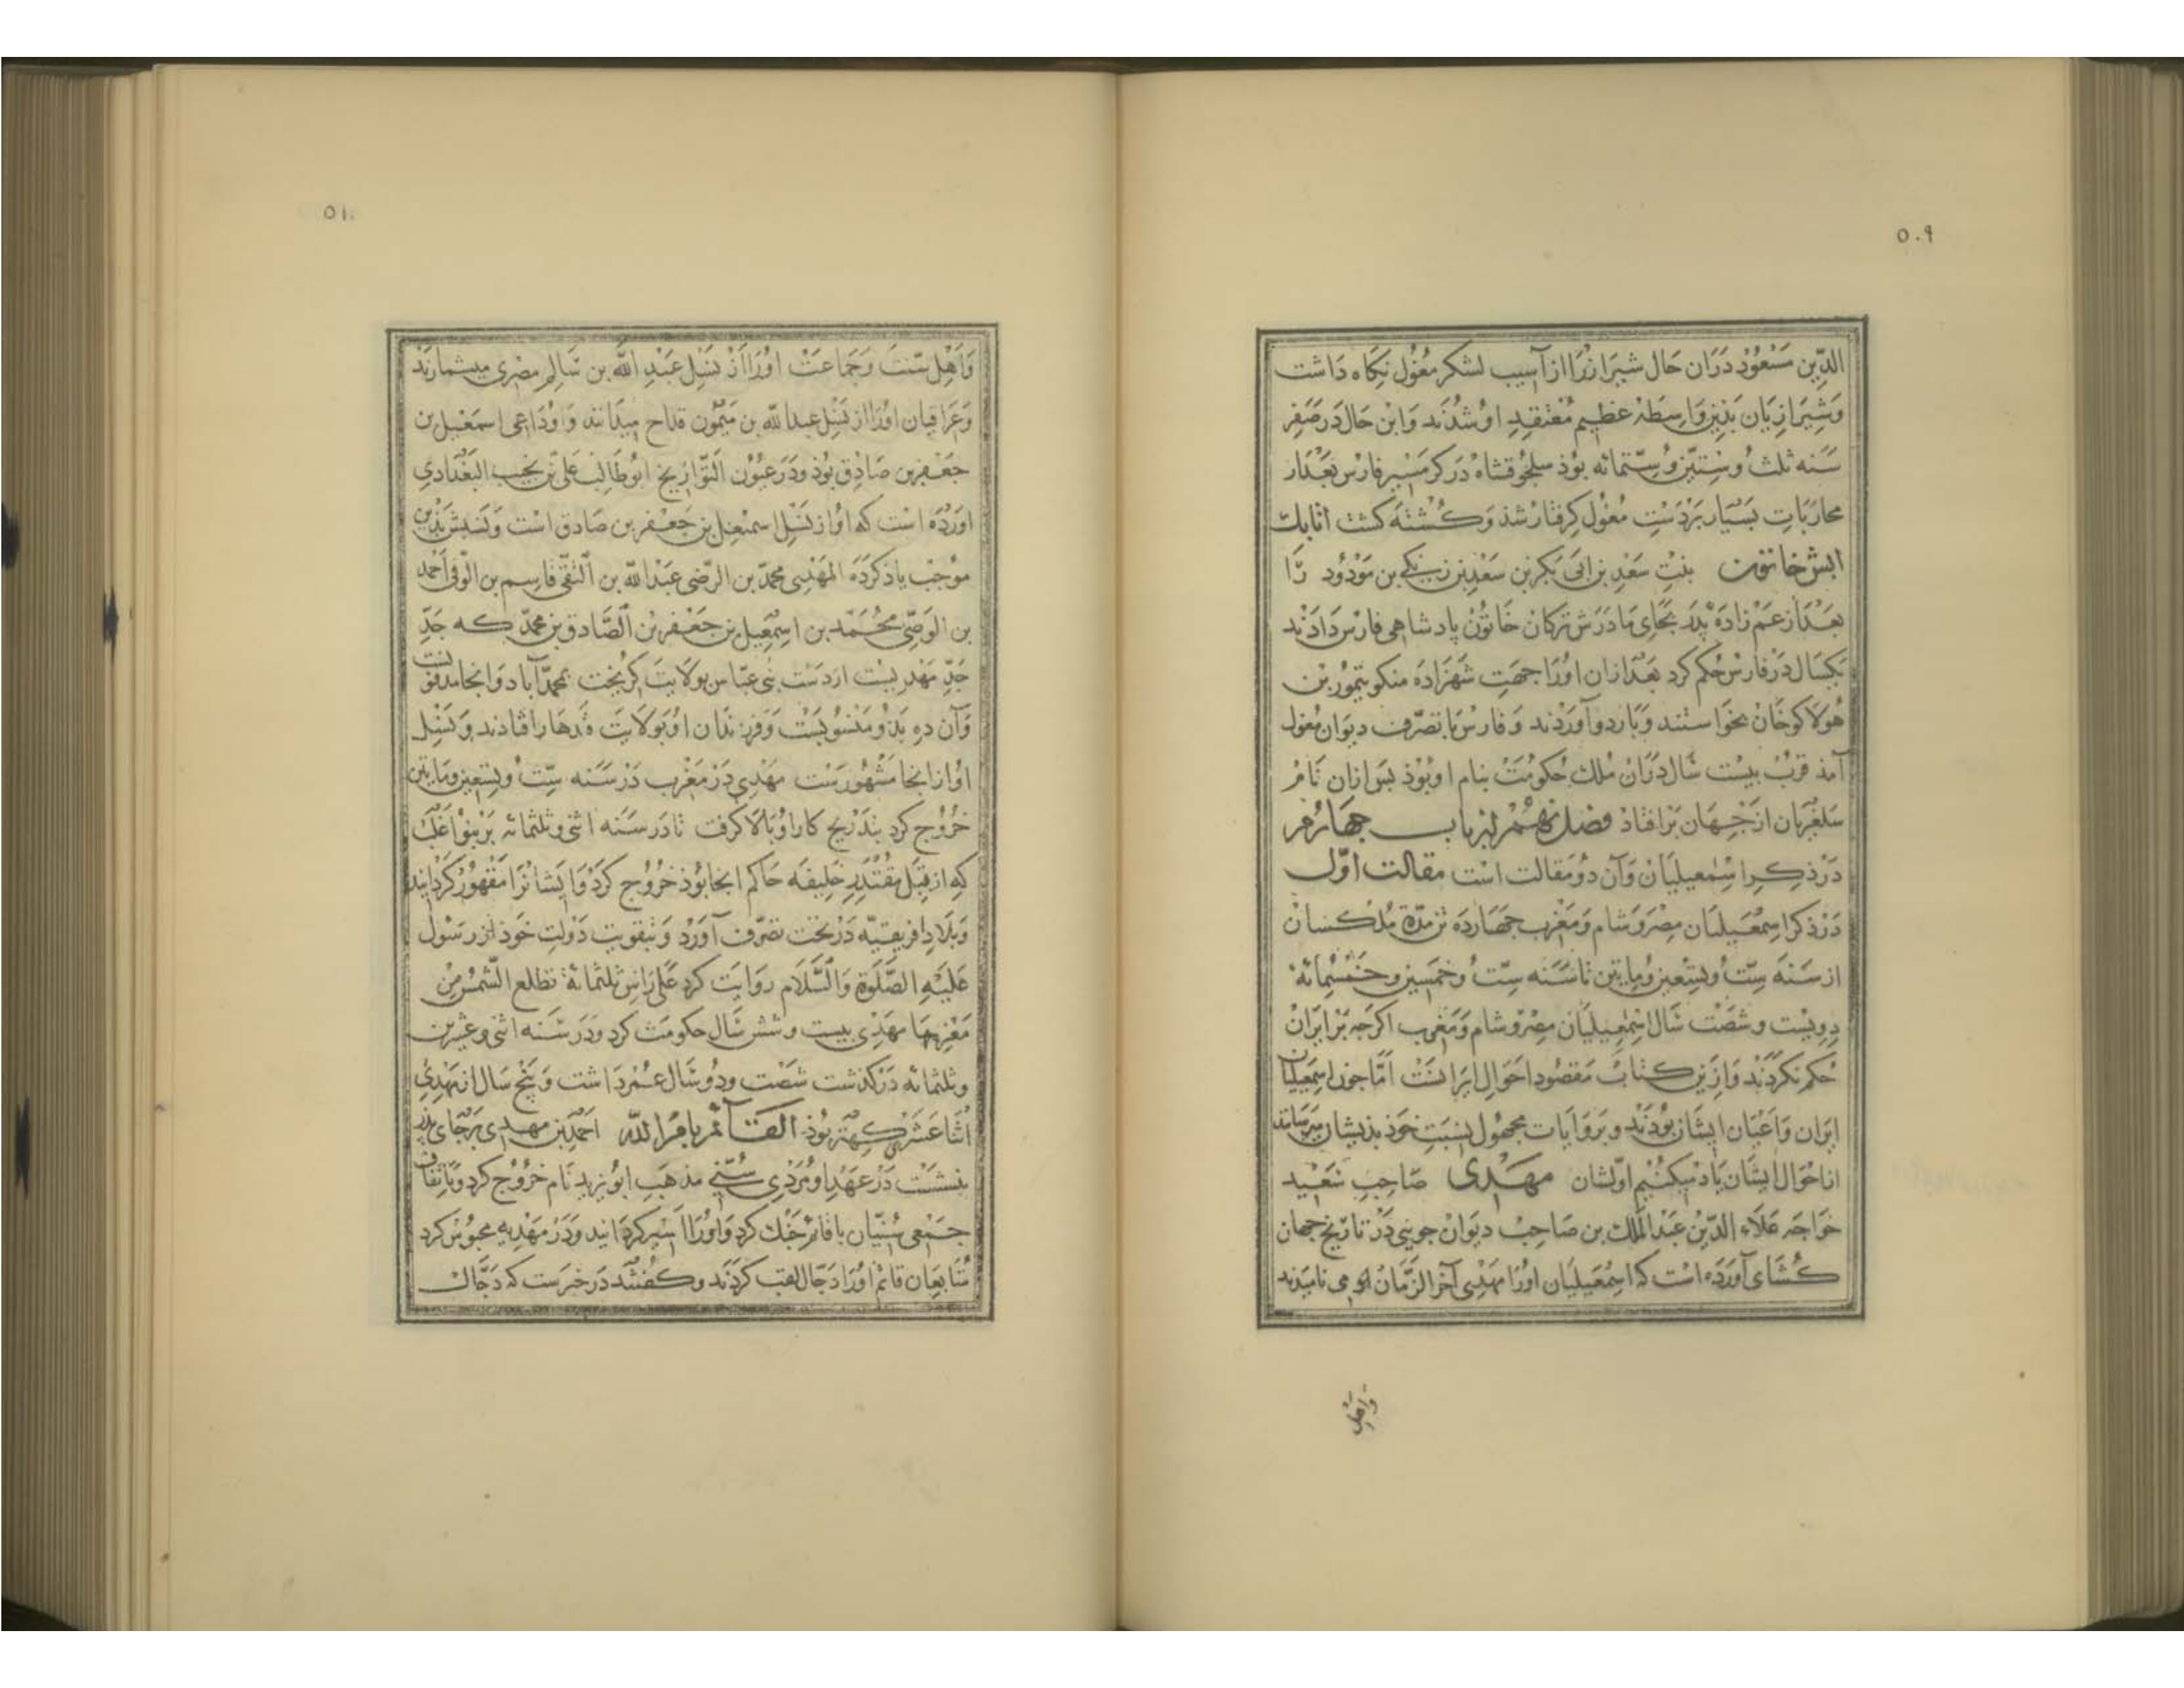 ٥٠٩
الدّین مَسْعُوْدْ دَرَان حَال شیرَازْرَا ازآسیب لشکر مغُول نکاه دَاشت
وَشیرَازیَان بَذین وَاسِطَهٔ عَظیم مُعْتقِدِ اوْ شُدَند وَاین حَال دَرصَفِر
سَنه ثلثْ وسِتّین وسِتّمائه بوْد سلجُوقشاهْ دَر کرمسیر فارس بَعْد از
محارَبَاتِ بسیَار بَردَسْتِ مغُول کِرفتارْ شذ وَ کُشْتهَ کشت اتابك
ابش خاتون بنتِ سَعْدِ بن ابی بَکر بن سَعْدِ بن زنکی بن مَوْدُود رَا
بعْد از عَمْ زادَهٔ پدَر بجَای مَادَرَش ترکان خَاتوْن پادشاهی فارْس دَادَند
یَکسَال دَرْفارسْ حُکم کرد بَعْدَازان اورَا جهَتِ شهْزادَه منکو تیمُور بن
هُولاکو خَانْ بخوَاستند وَبَاردو آوَرْدند وَ فارسْ با تصرّف دیوَان مغول
آمذ قربْ بیست سَال دَرَانْ مُلك حکومَتْ بنام او بُوْذ بسَ ازان نَامْ
سَلغرْیَان از جهَان بَرافتاذ فصَل نهُمْ از باب جهَارُم
دَرْذکرِ اسْمعیلیَانْ وَآن دوُمَقالت است مقالت اوّل
دَرْذکر اسمْعیلیَان مِصْر وَشام وَمَغرب جهَارَدَه تن مدّة مُلكشان
از سَنهَ سِتّ وتِسْعین ومایتین تا سَنه سِتّ وخمْسین وخَمْسِمائة
دِویسْت وشصْت سَال اسْمٰعیلیَان مصْرو شام وَمَغرب اکرجه بَر ایرَانْ
حُکم نکردَنْد وَازین کتابْ مَقصُود احوَالِ ایرَانسْت امّا جون اسمعیلیان
ایرَان وَاعْیَان ایشَان بوُدَند وبرَوَایات مجهُول نسْبَتِ خوَذ بذیشان میرسَانند
ازاحْوَال ایشَان یَاد میکنیم اوّلشان مهَدِی صَاحِبِ سَعِید
خوَاجَه عَلاَءِ الدّیْن عَبْدالملك بن صَاحِبْ دیوَانْ جوینی دَرْ تاریْخ جهان
کُشَای آوَرَدَه است که اسمْعیلیَان اورَا مهْدِی آخر الزّمَانْ او می نامیدند
وَاهْلِ
٥١٠
وَاَهْلِ سنّتَ وَجَمَاعَتْ اوْرَا اَزْ نسَلِ عَبْدِ اللّٰه بن سَالِمِ مصْری میشمارَند
وَعَرَاقیان اوْرَا از نسَلِ عبد اللّه بن مَیْمُون قدّاح میدَانند وَاوُ دَاعی اسمعیل بن
جعَفر بن صَادِق بوُذ ودَر عیُوْن التّوَاریخ ابوُطَالِب علی بن نجیب البَغْدَادی
اورَدَه است که اوْ از نسَل اسمٰعیل بن جَعْفر بن صَادق است وَنسَبش بَذین
مَوْجَبْ یاذ کردَه المَهْدِی محمّد بن الرّضی عَبْدُ اللّه بن التقی قاسِم بن الوَفی اَحْمد
بن الوَصّی محمّد بن اسْمٰعیل بن جعَفر بن الصّادق بن محمّدْ که جَدِّ
جَدِّ مَهْدیست از دَسْت بنی عبّاس بولاَیتَ کریخت بمحمّدْآباد وَانجا مدفونست
وَآن دِه بَذو مَنسوُبست وَفرزندَان اوْ بوَلاَیتَ قندهار افتادند وَنسَل
اوْ از انجا مَشْهُورَست مَهْدِی دَر مَغْرب دَرْ سَنه سِتّ وتِسْعین ومَایتین
خرُوْج کرد بتدْریْج کار اوْ بَالاَ کرفت تا دَر سَنه اثنی وثلثمائه بَر بنواغلَب
که از قِبَل مقتدِر خَلِیفَه حَاکم انجا بوُذ خرُوْج کردْ وَایشانرَا مَقهُوْر کردَانید
وَبلَادِ افریقیّه دَرْ تحت تصَرّفْ آوَرْد وَبتقویتِ دَولتِ خَوذ از رَسُول
عَلیَهِ الصَّلوٰة وَالسَّلَام روَایت کرد عَلی رَاسِ ثلثمائة تطلع الشّمْسُ مِنْ
مَغْرِبهَا مهَدِی بیست وشش سَال حکومَت کرد ودَر سَنه اثنی وعِشْرین
وثلثمائه دَرکذَشت شصْت ودوُ سَال عُمْر دَاشت وَپنج سَال از مَهْدِی
اثنا عَشَری کهْتر بوُذ القائم بامْرِ اللّه احمَد بن مهدی بَرجَای پدر
بنشَسْت دَرْ عَهْدِ او مَرْدِی سُنّی مذهَب ابوُ یزید نَام خرُوْج کرد وَبا تفاق
جمَعی سُنّیَان با قائم جَنْك کرد وَاوْرَا اسَیر کردَانید ودَرْ مَهْدِیه محبوْس کرد
مُتَابعَان قائم اوْرَا دَجّال لقب کردَند وکفتند دَر خبرست که دَجّال